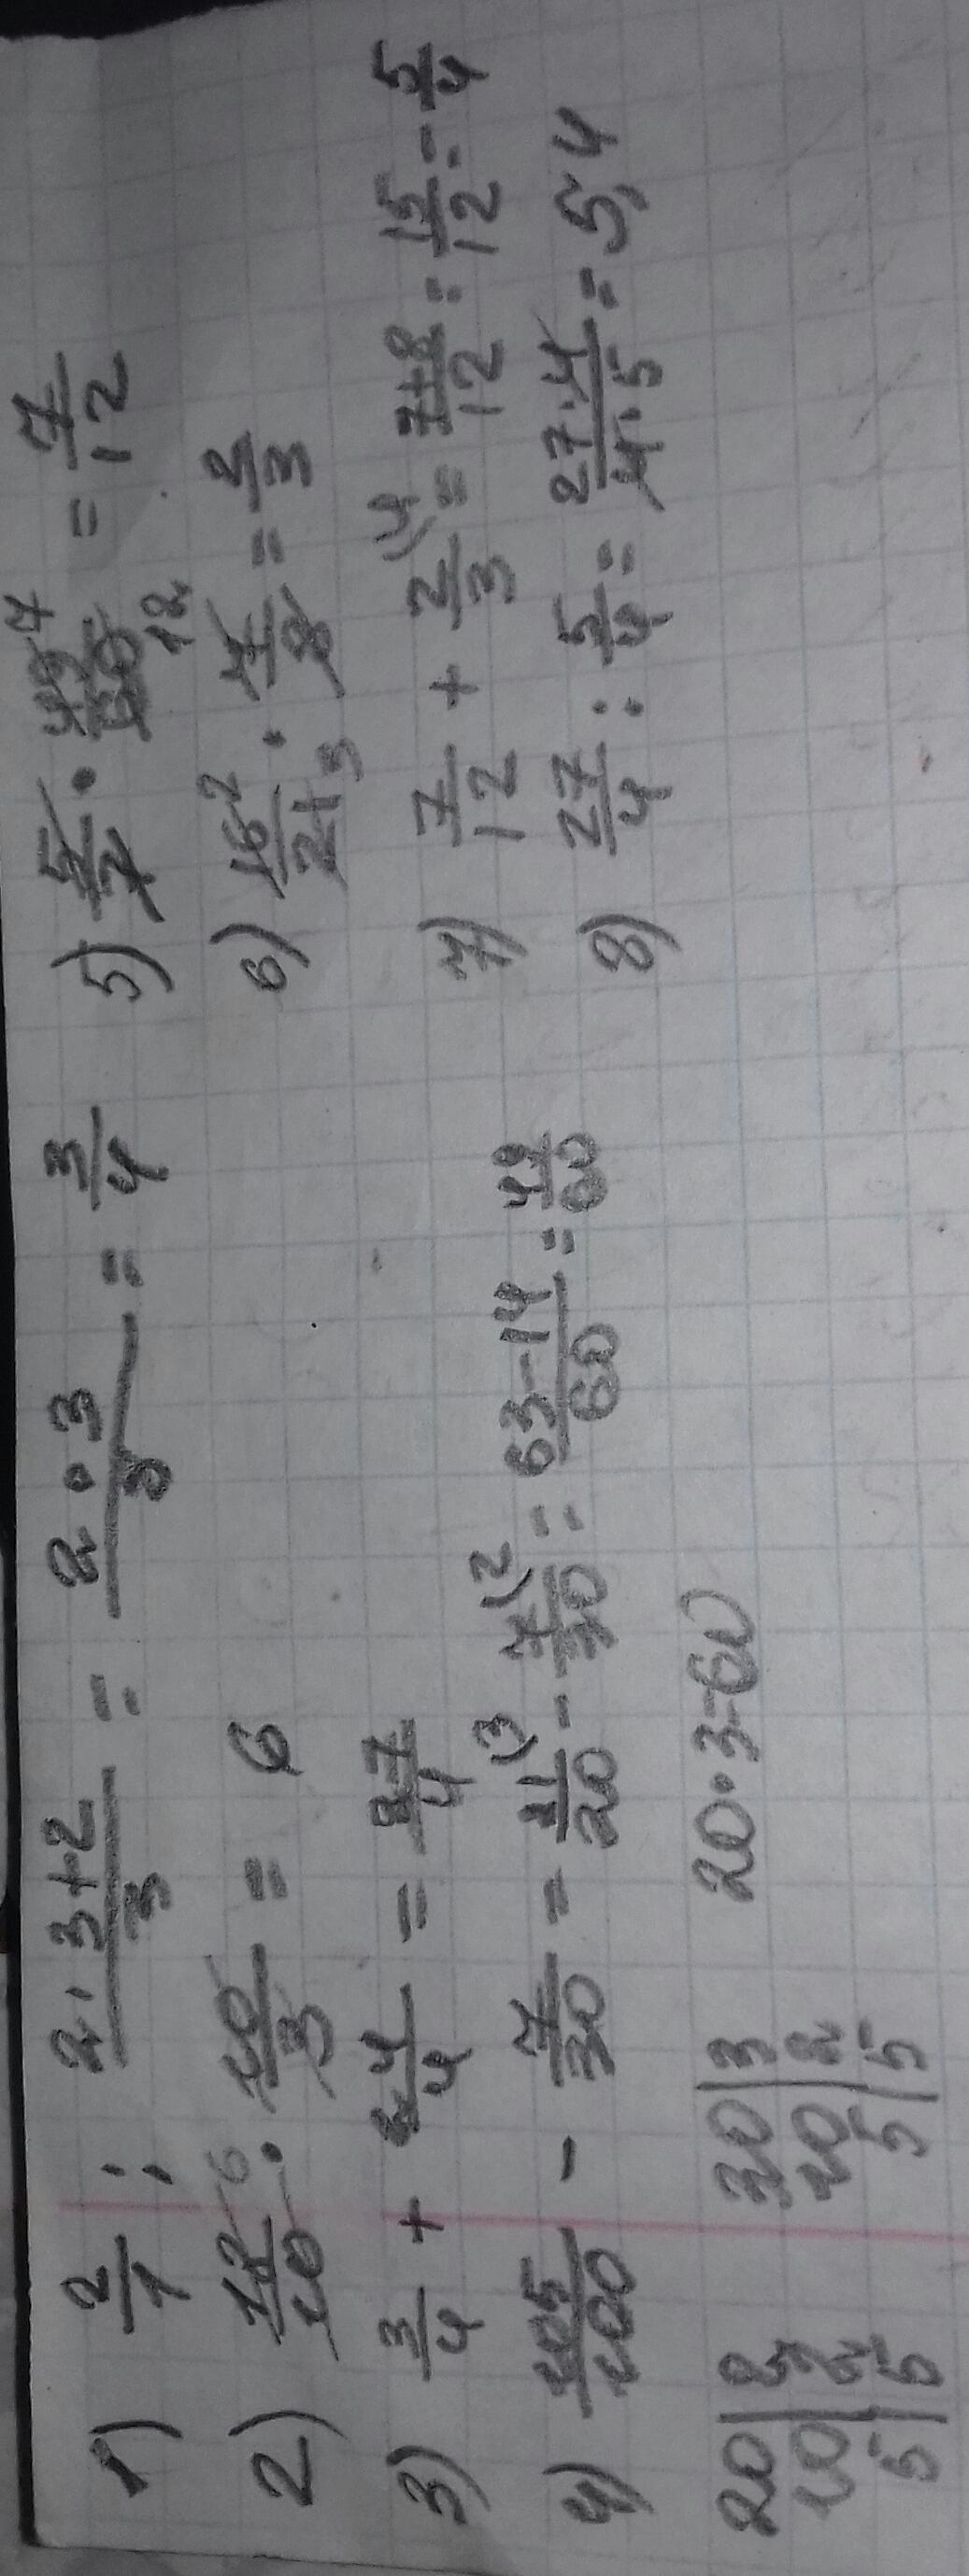 1) 2/1 : 2·3+2/3 = 2·3/8 = 3/4
2) 18/10 · 10/3 = 6
3) 3/4 + 24/4 = 27/4
4) 105/100 - 7/30 = 21/20 (3 - 7/30 (2 = 63-14/60 = 49/60
20|2 30|3 20·3=60
10|2 10|2
5|5 5|5
5) 5/7 · 49/60 = 7/12
6) 16/21 · 7/8 = 2/3
7) 7/12 + 2/3 (4 = 7+8/12 = 15/12 = 5/4
8) 27/4 : 5/4 = 27·4/4·5 = 5,4